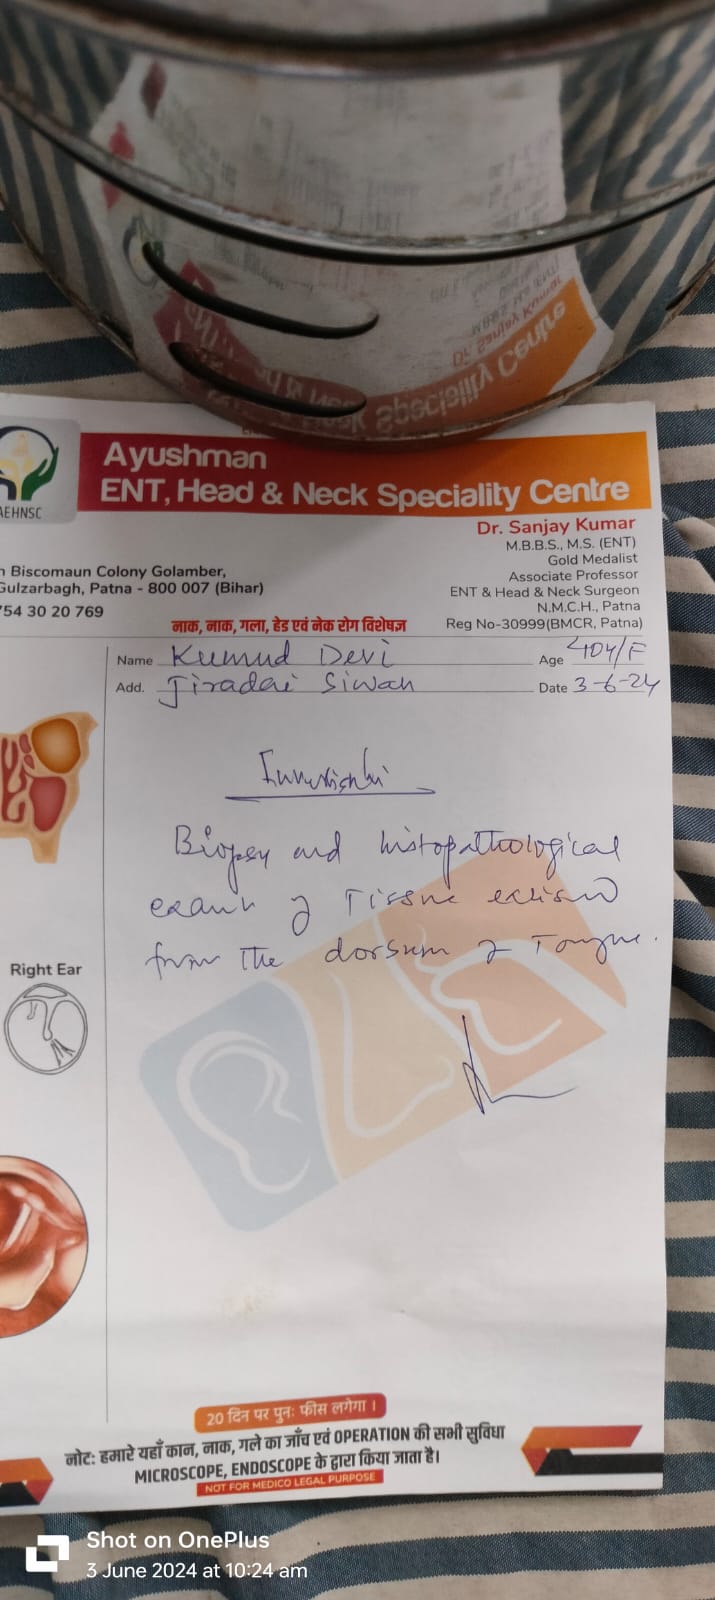 Ayushman
ENT, Head & Neck Speciality Centre
AEHNSC
Dr. Sanjay Kumar
M.B.B.S., M.S. (ENT)
Gold Medalist
Associate Professor
ENT & Head & Neck Surgeon
N.M.C.H., Patna
Reg No-30999(BMCR, Patna)
n Biscomaun Colony Golamber,
Gulzarbagh, Patna - 800 007 (Bihar)
754 30 20 769
नाक, नाक, गला, हेड एवं नेक रोग विशेषज्ञ
Name Kumud Devi Age 40y/F
Add. Jiradei Siwan Date 3-6-24
Biopsy and histopathological
examn of Tissue excised
from the dorsum of Tongue.
Right Ear
20 दिन पर पुनः फीस लगेगा ।
नोट: हमारे यहाँ कान, नाक, गले का जाँच एवं OPERATION की सभी सुविधा
MICROSCOPE, ENDOSCOPE के द्वारा किया जाता है।
NOT FOR MEDICO LEGAL PURPOSE
Shot on OnePlus
3 June 2024 at 10:24 am